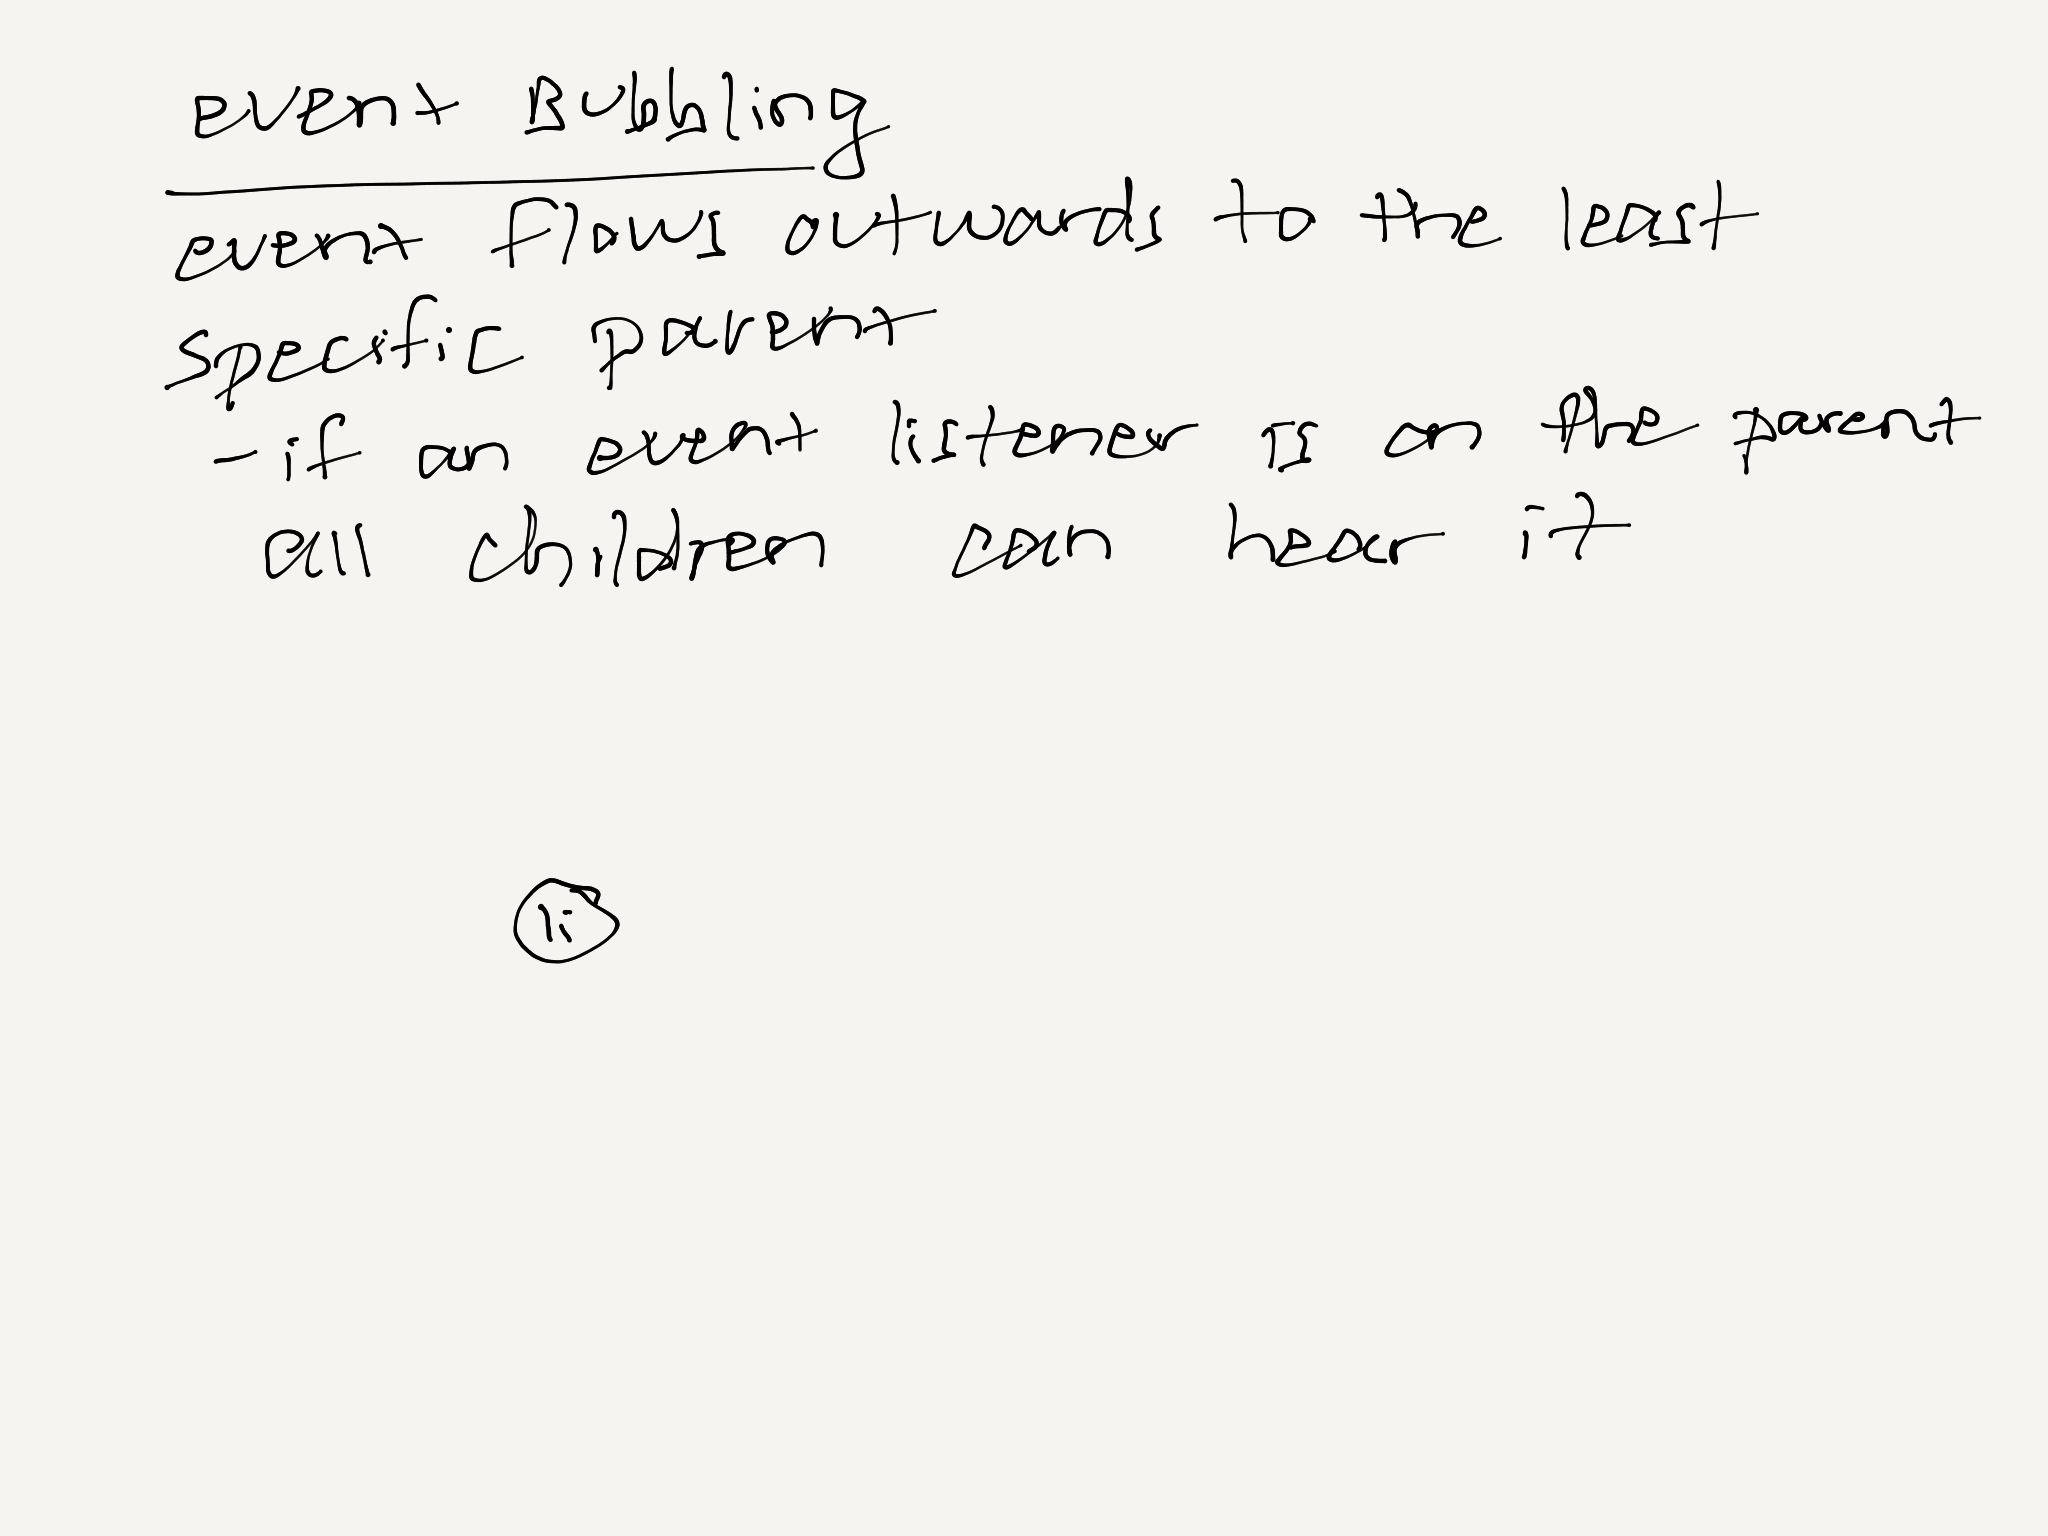 event Bubbling
event flows outwards to the least
specific parent
- if an event listener is on the parent
all children can hear it
li